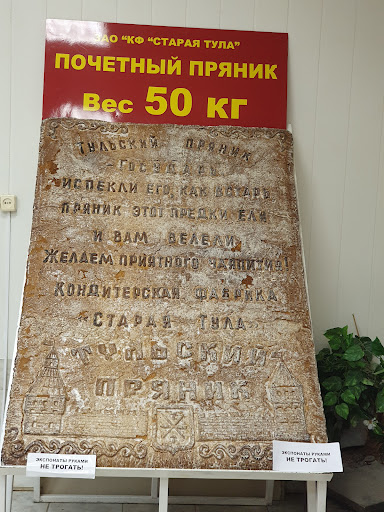 ЗАО "КФ "СТАРАЯ ТУЛА"
ПОЧЕТНЫЙ ПРЯНИК
Вес 50 кг
ТУЛЬСКИЙ ПРЯНИК
ГОСПОДА!
ИСПЕКЛИ ЕГО, КАК ВСТАРЬ
ПРЯНИК ЭТОТ ПРЕДКИ ЕЛИ
И ВАМ ВЕЛЕЛИ
ЖЕЛАЕМ ПРИЯТНОГО ЧАЕПИТИЯ!
КОНДИТЕРСКАЯ ФАБРИКА
СТАРАЯ ТУЛА
ТУЛЬСКИЙ
ПРЯНИК
ЭКСПОНАТЫ РУКАМИ
НЕ ТРОГАТЬ!
ЭКСПОНАТЫ РУКАМИ
НЕ ТРОГАТЬ!